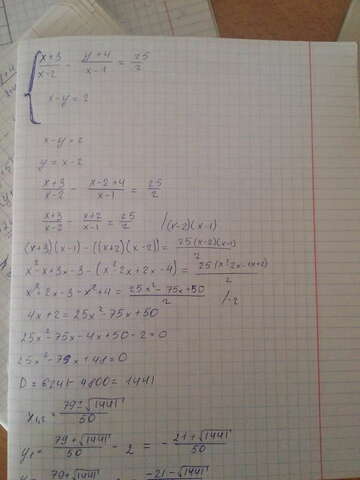 (x+3)/(x-2) - (y+4)/(x-1) = 25/2
x-y=2
x-y=2
y=x-2
(x+3)/(x-2) - (x-2+4)/(x-1) = 25/2
(x+3)/(x-2) - (x+2)/(x-1) = 25/2 /(x-2)(x-1)
(x+3)(x-1) - ((x+2)(x-2)) = 25(x-2)(x-1)/2
x²-x+3x-3-(x²-2x+2x-4) = 25(x²-2x-1x+2)/2
x²+2x-3-x²+4 = (25x²-75x+50)/2 /·2
4x+2=25x²-75x+50
25x²-75x-4x+50-2=0
25x²-79x+48=0
D=6241-4800=1441
x₁,₂=(79±√1441)/50
y₁=(79+√1441)/50 - 2 = -(21+√1441)/50
(79+√1441)/50 = (-21-√1441)/50